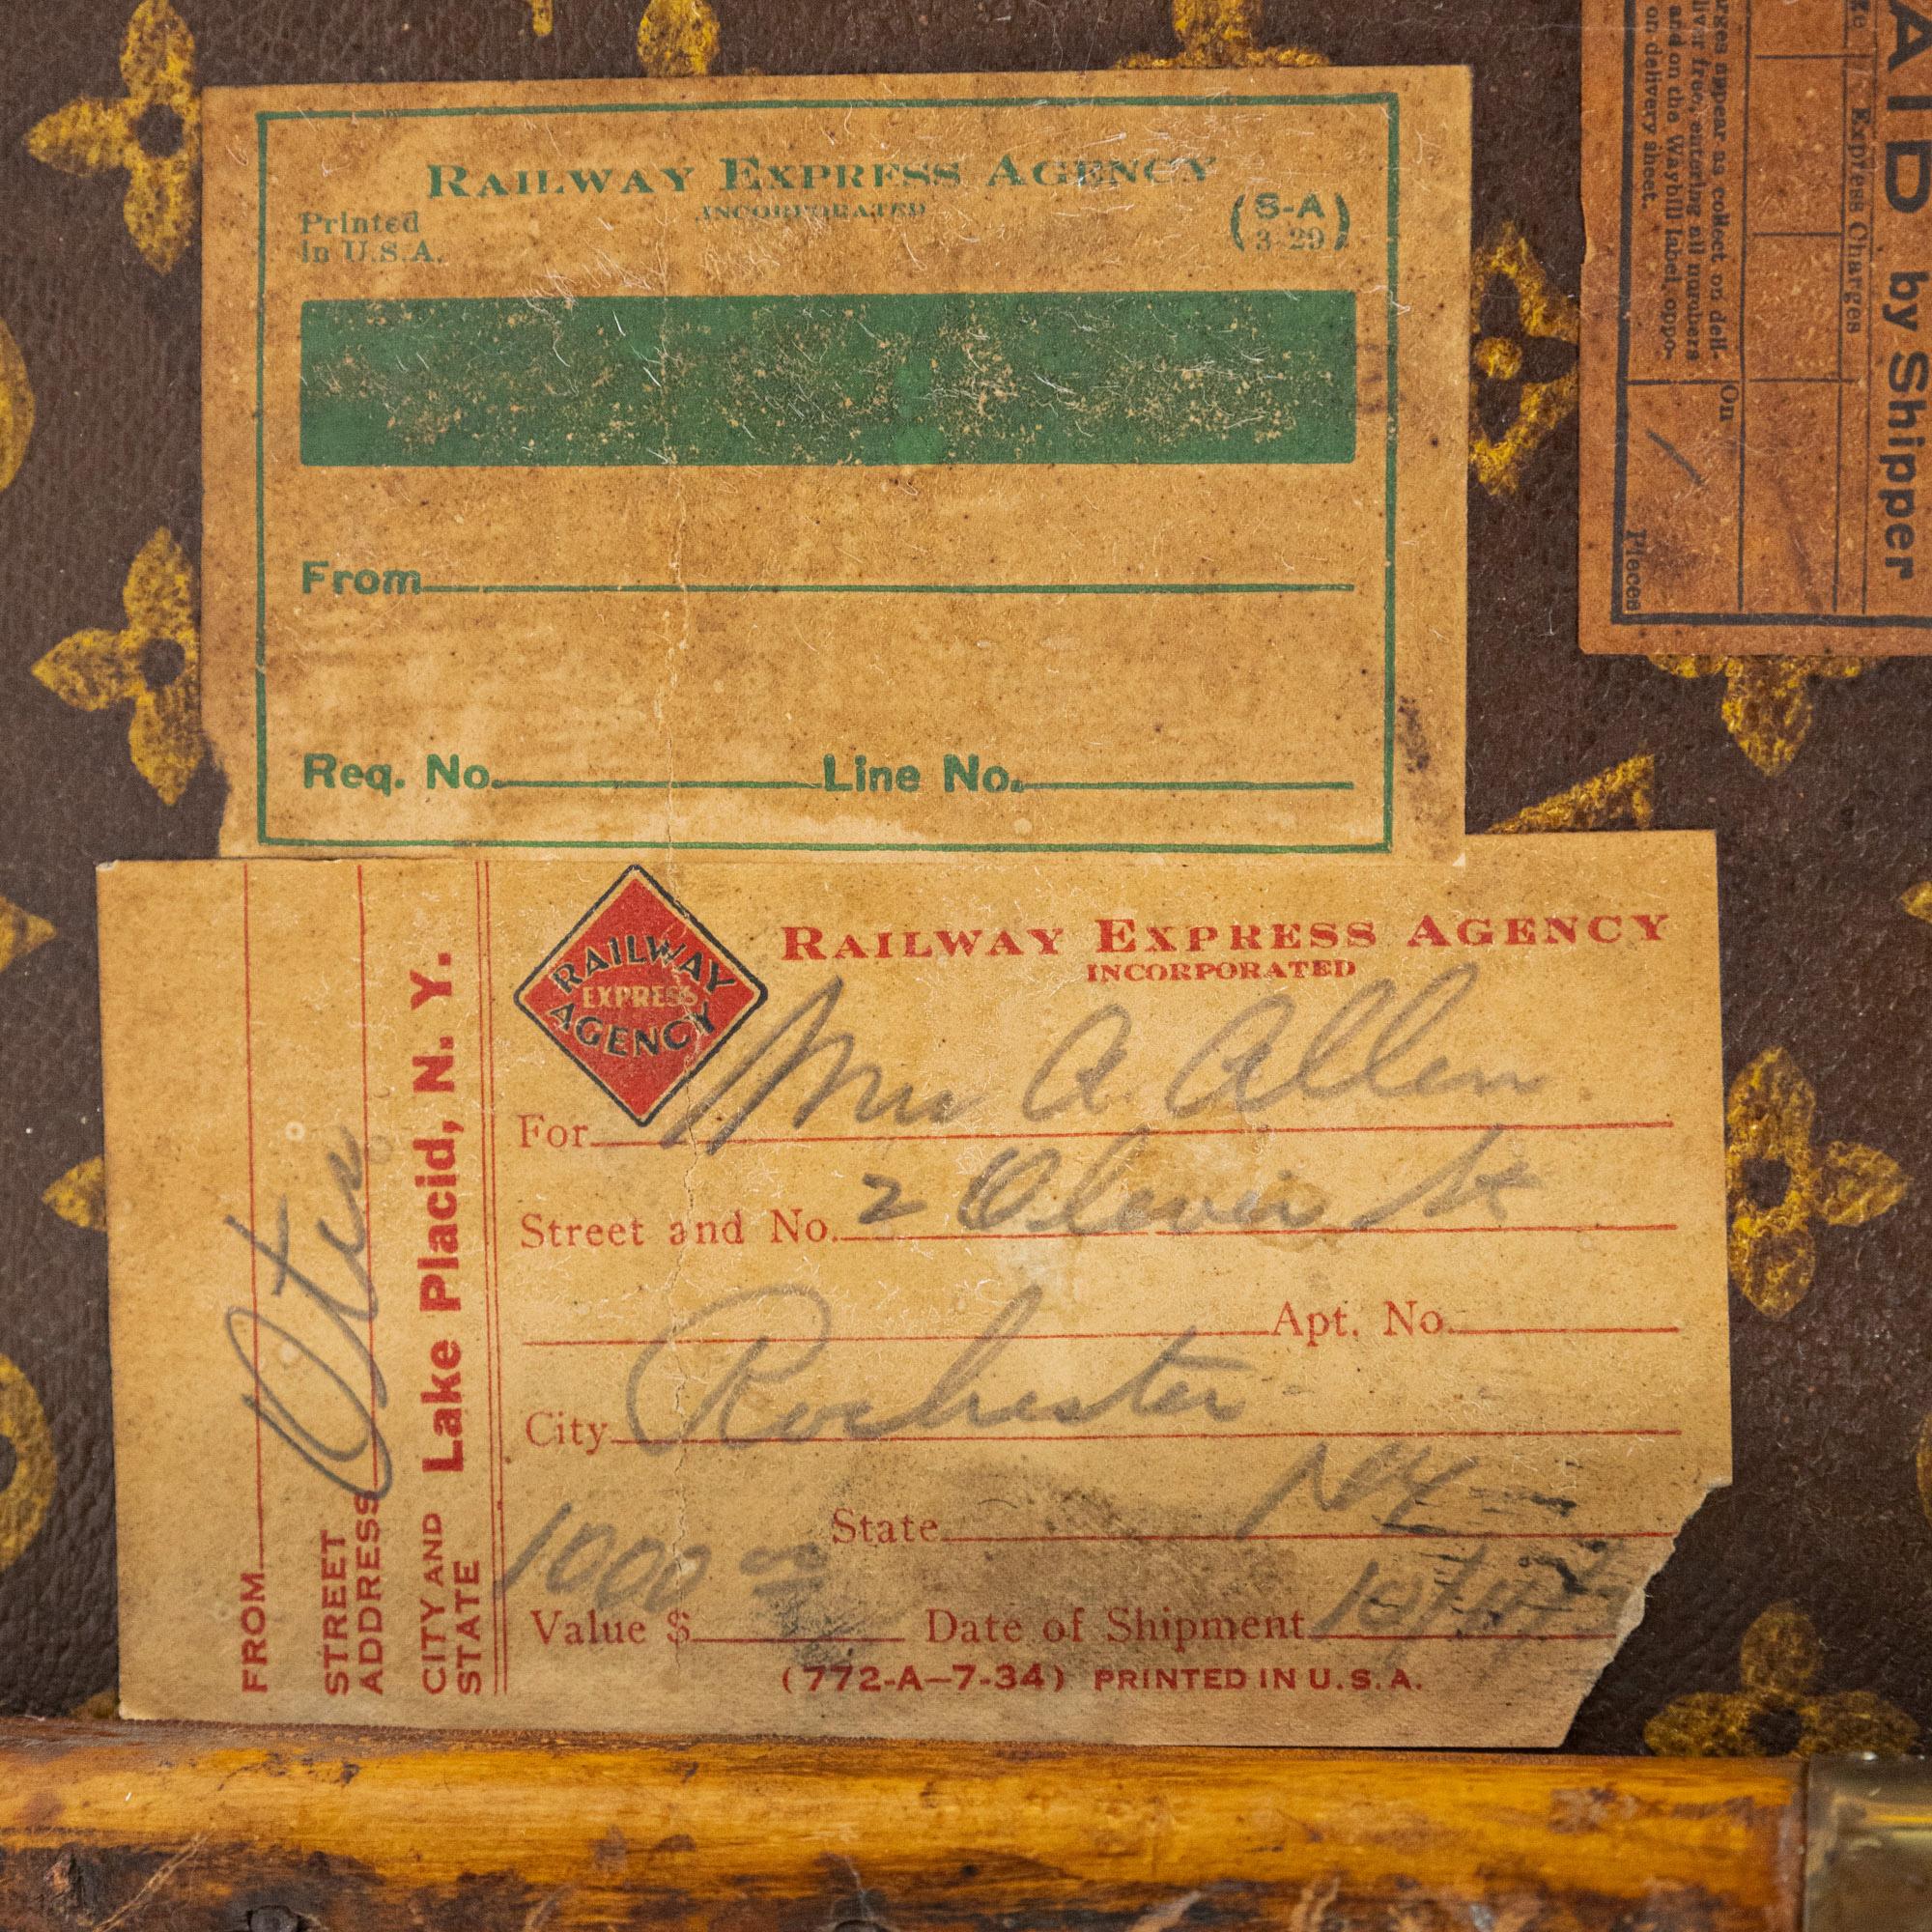 RAILWAY EXPRESS AGENCY
INCORPORATED
Printed
in U.S.A.
(S-A
3-29)
From
Req. No. Line No.
RAILWAY
EXPRESS
AGENCY
RAILWAY EXPRESS AGENCY
INCORPORATED
For A. Allen
Street and No. 2 St
Apt. No.
City Rochester
State NY
1000 00
Value $ Date of Shipment
(772-A—7-34) PRINTED IN U.S.A.
FROM Otis
STREET
ADDRESS
CITY AND
STATE Lake Placid, N. Y.
AID by Shipper
Express Charges
On
arges appear as collect on deli-
liver free, entering all numbers
and on the Waybill label, oppo-
on delivery sheet.
Pieces